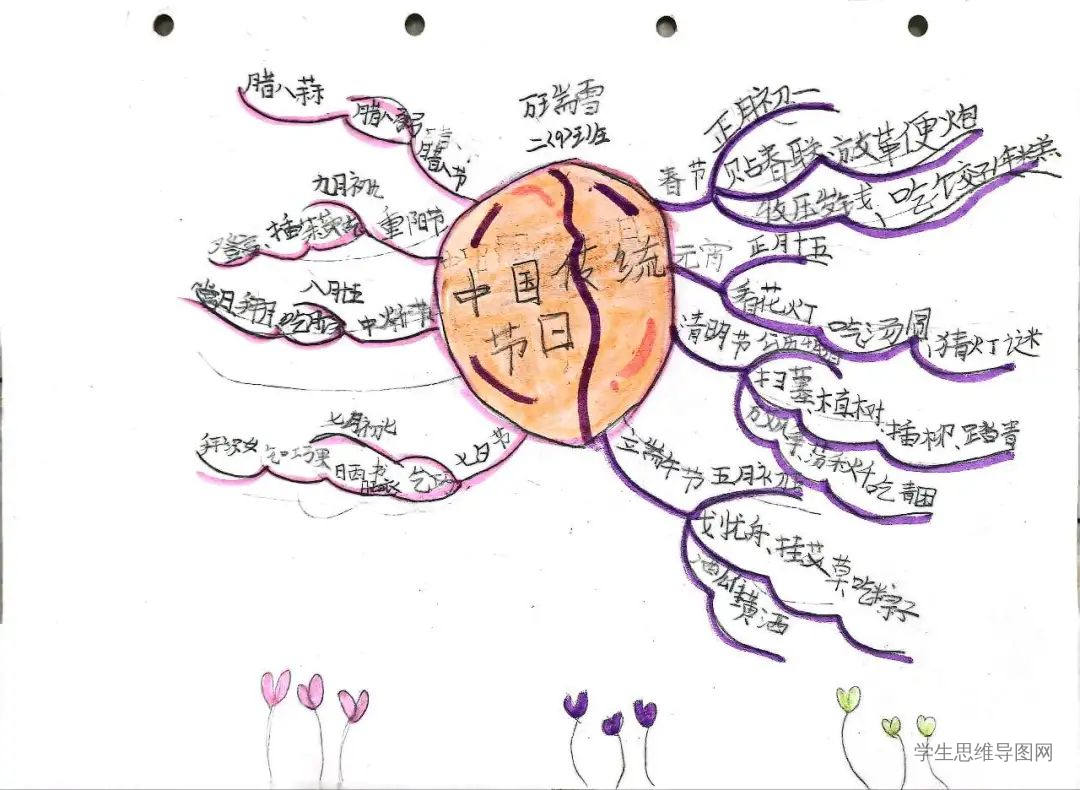 瑞雪
二(9)班
中国传统
节日
春节
正月初一
贴春联、放革便火包
收压岁钱、吃饺子年糕
元宵
正月十五
看花火丁
吃汤圆
猜火丁谜
清明节
扫墓、植树、插柳、踏青
荡秋千 吃青团
立端午节
五月初五
戈刂龙舟、挂艾草、吃粽子
雄黄酒
七夕节
七月初七
乞巧
晒书
乞巧果
拜织女
中秋节
八月十五
吃月饼
赏月
重阳节
九月初九
插茱萸
登高
腊八节
腊八粥
腊八蒜
学生思维导图网